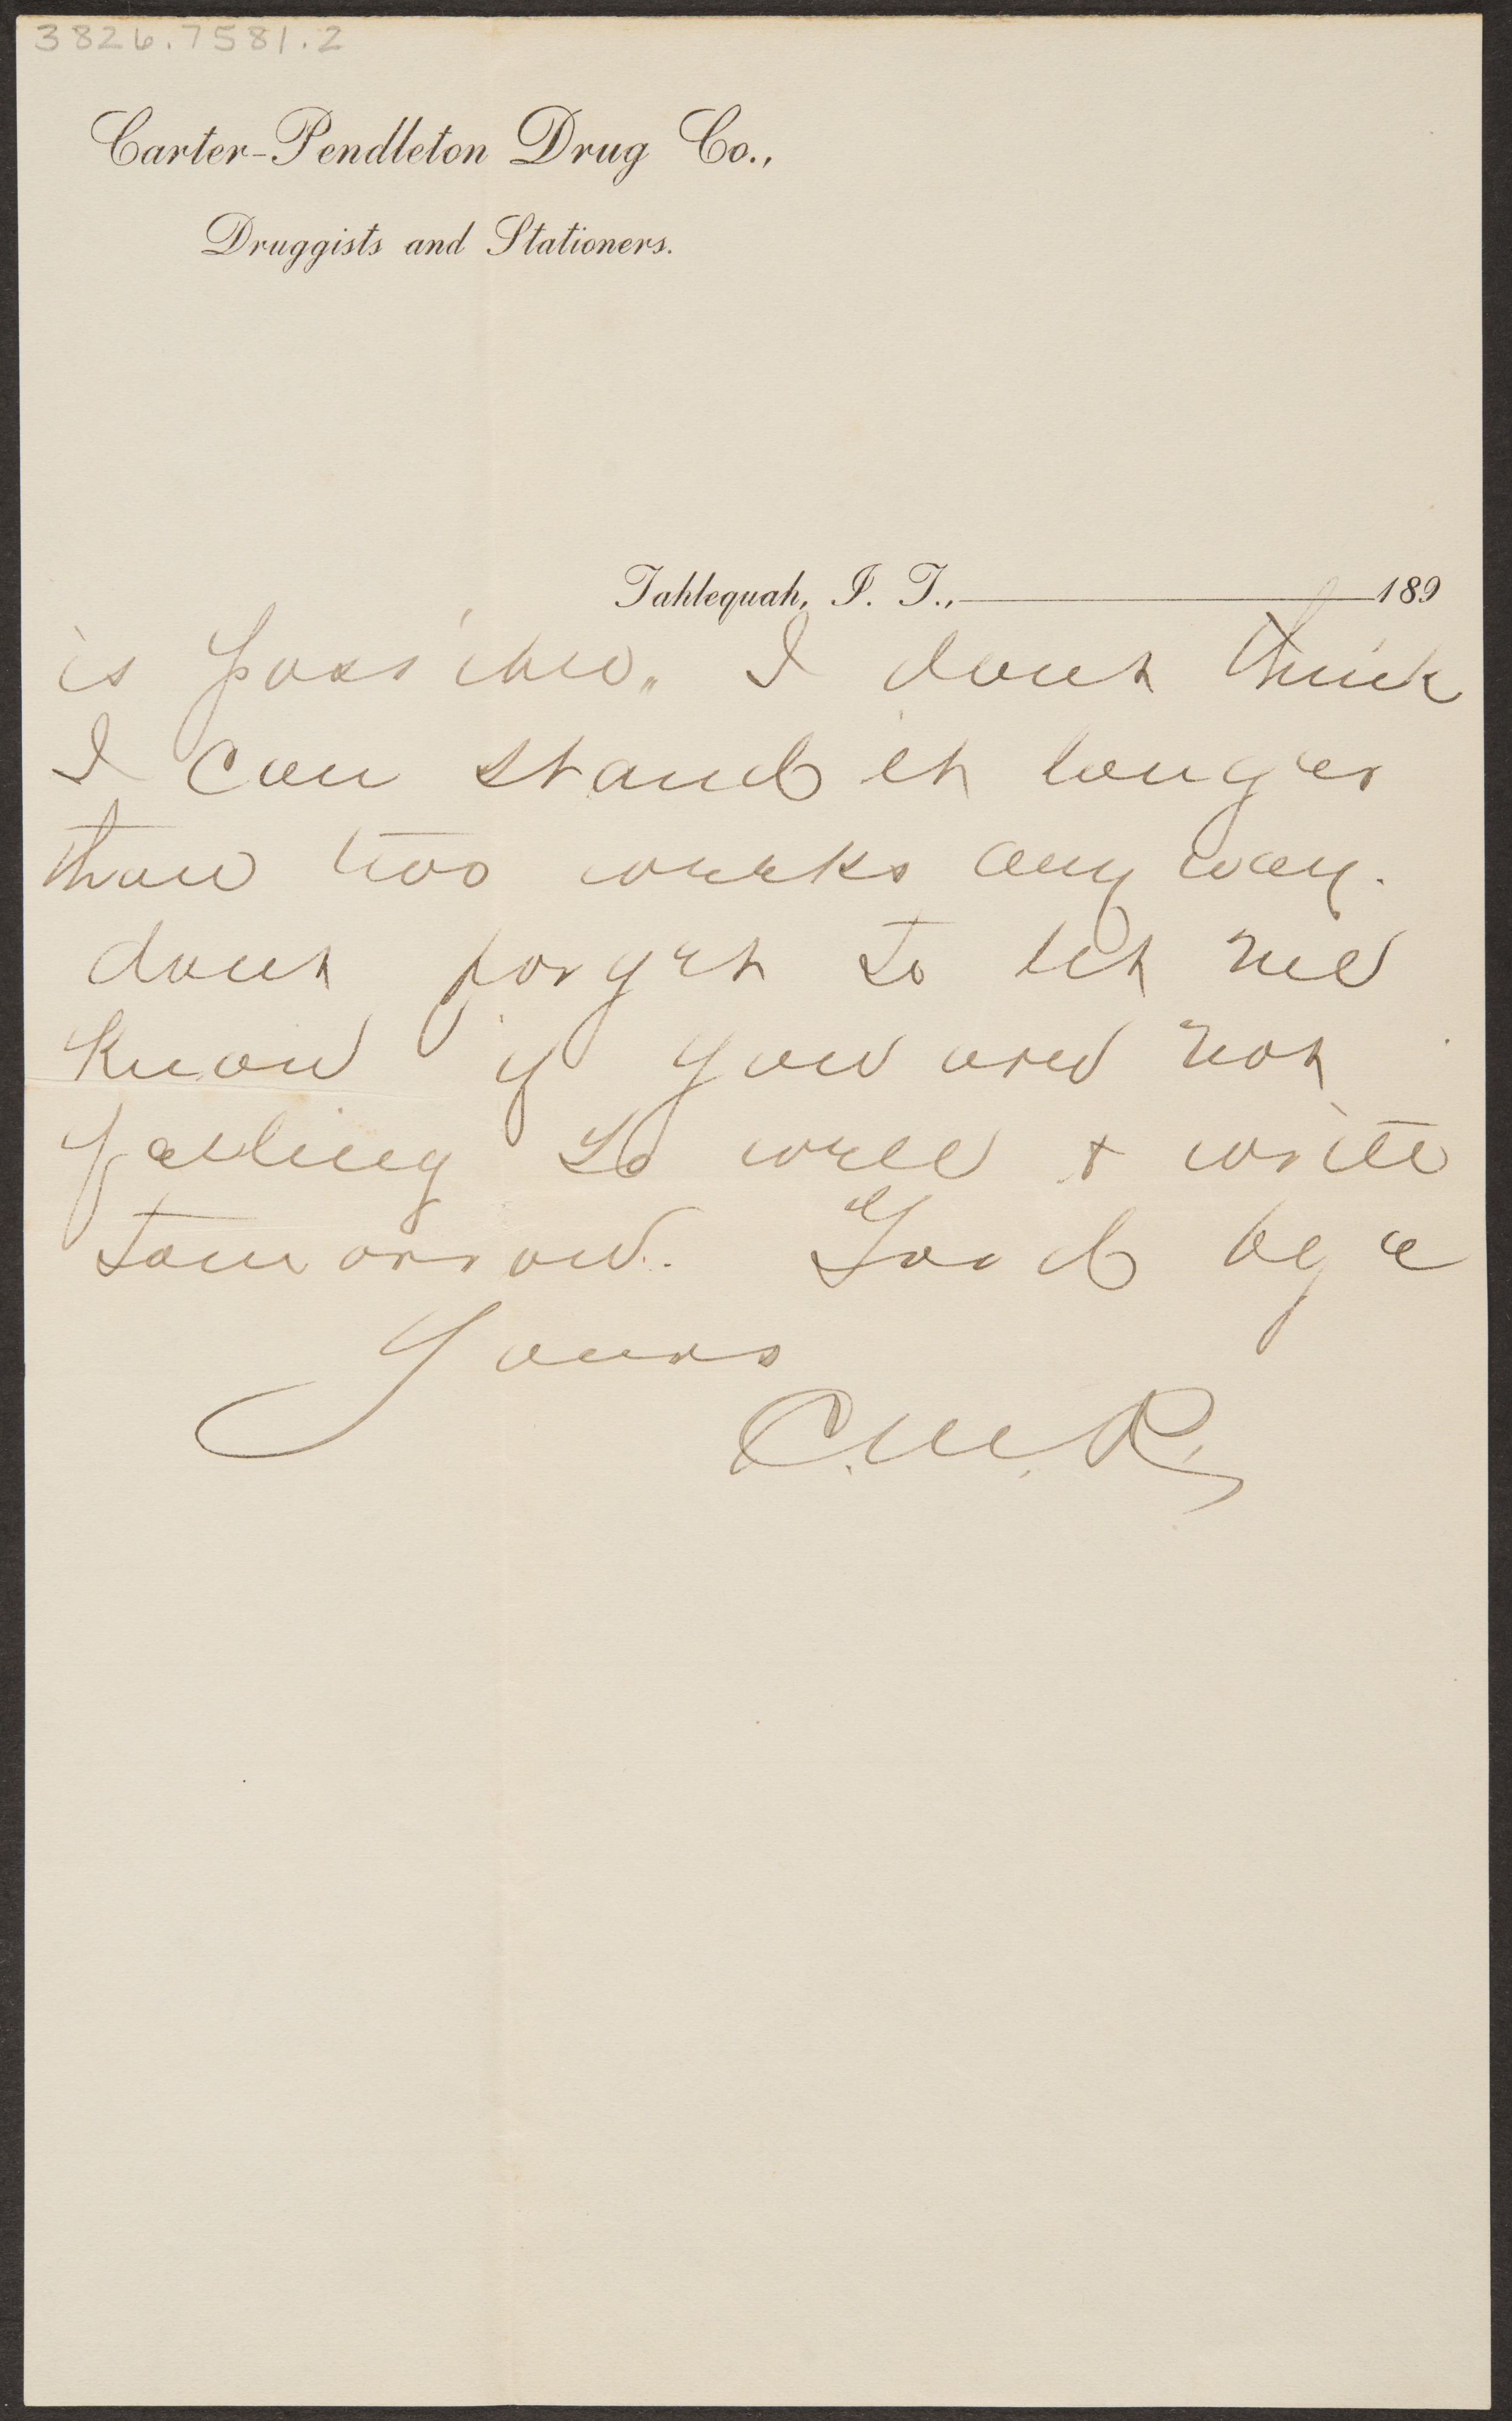 3826.7581.2
Carter-Pendleton Drug Co.,
Druggists and Stationers.
Tahlequah, I. T., 189
is possible. I dont think
I can stand it longer
than two weeks any way.
dont forget to let me
know if you are not
feeling so well + write
tomorrow. Good bye
Yours
C.W.R.